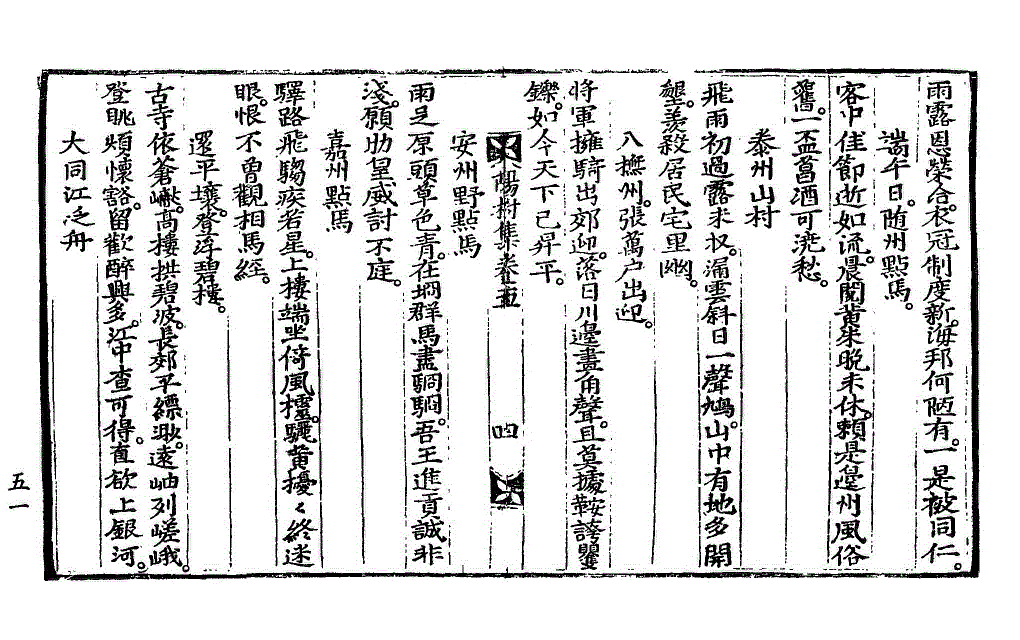 雨露恩榮合。衣冠制度新。海邦何陋有。一是被同仁。
端午日。随州點馬。
客中佳節逝如流。晨閱黃朱晩未休。賴是邊州風俗
舊。一盃菖酒可澆愁。
泰州山村
飛雨初過露未収。漏雲斜日一聲鳩。山中有地多開
墾。羡殺居民宅里幽。
入撫州。張萬户出迎。
将軍擁騎出郊迎。落日川邊畫角聲。且莫據鞍誇矍
鑠。如今天下已昇平。
陽村集卷五
四
安州野點馬
雨足原頭草色青。在坰群馬盡駉駉。吾王進貢誠非
淺。願助皇威討不庭。
嘉州點馬
驛路飛騶疾若星。上樓端坐倚風櫺。驪黄擾〻終迷
眼。恨不曾觀相馬經。
還平壤。登浮碧樓。
古寺依蒼巘。高樓拱碧波。長郊平縹渺。遠岫列嵯峨。
登眺煩懷豁。留歡醉興多。江中查可得。直欲上銀河。
大同江泛舟
五一